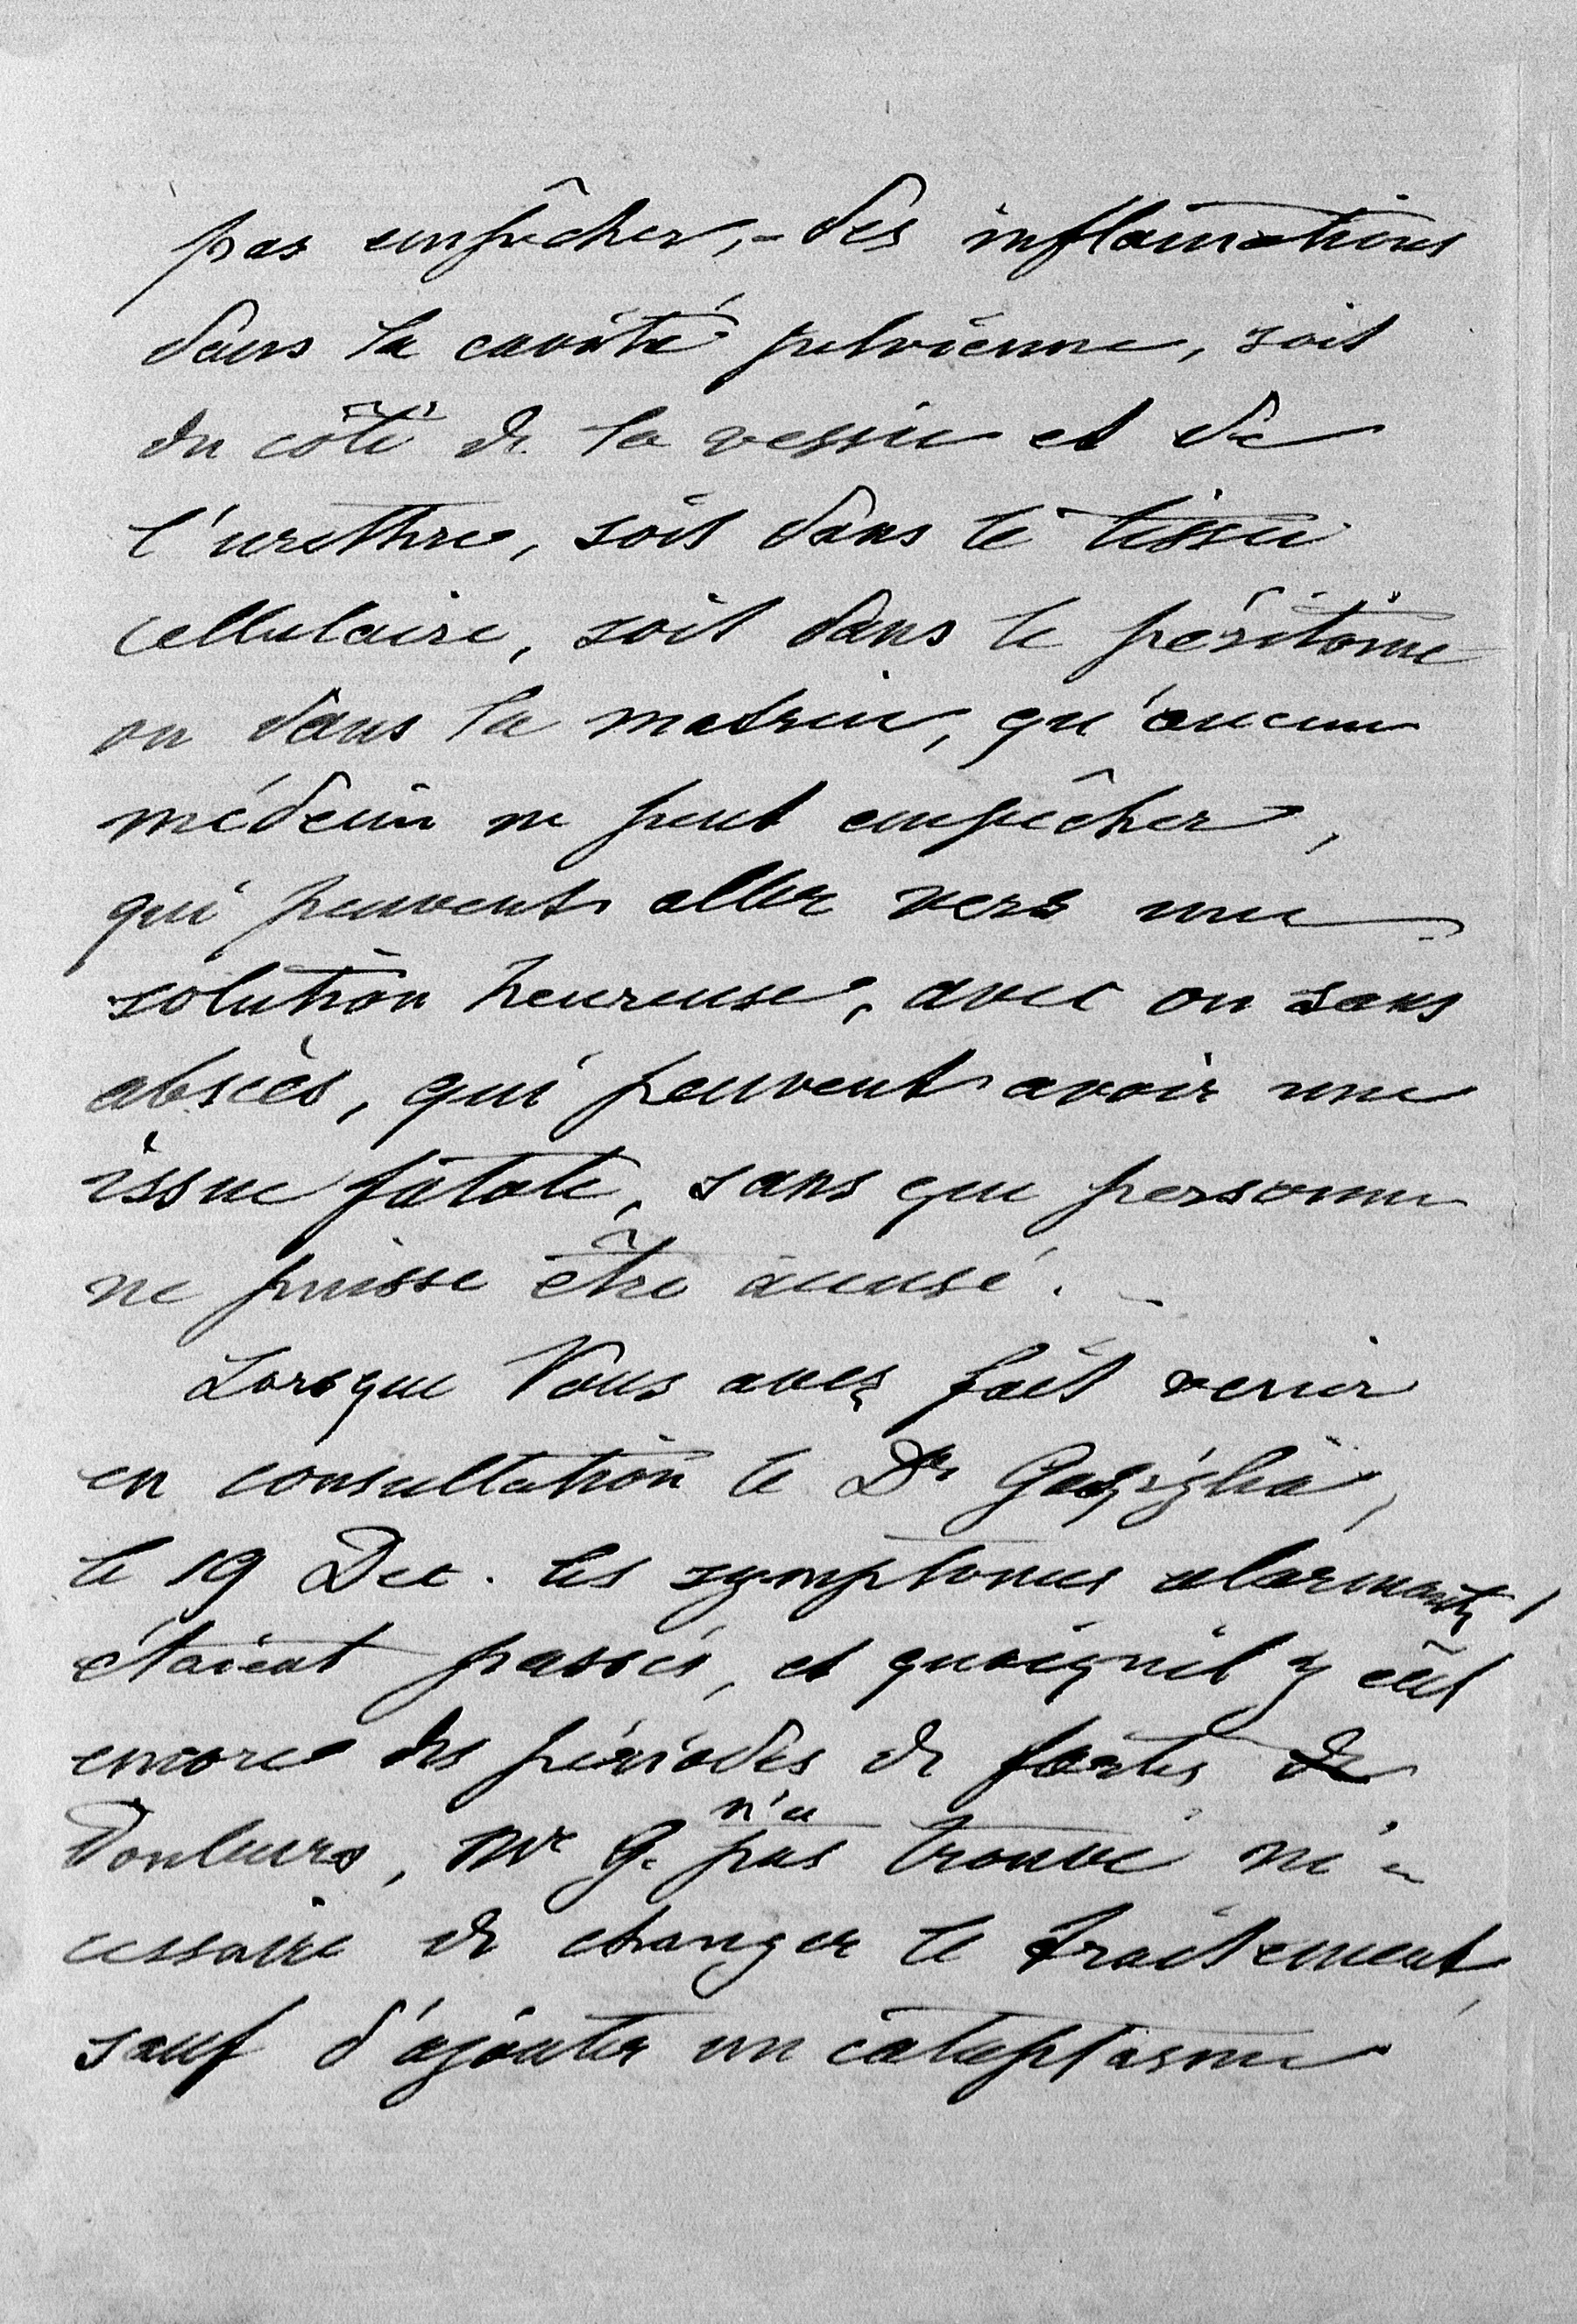 pas empêcher, - des inflamations
dans la cavité pelvienne, soit
du côté de la vessie et de
l'urethre, soit dans le tissu
cellulaire, soit dans le péritoine
ou dans la matrice, qu'aucun
médecin ne peut empêcher,
qui peuvent aller vers une
solution heureuse, avec ou sans
abscès, qui peuvent avoir une
issue fatale, sans que personne
ne puisse être accusé. -
Lorsque Vous avez fait venir
en consultation le Dr
le 19 Dec. les symptomes alarmants,
étaient passés, et quoiqu'il y eût
encore des périodes de fortes de
Douleurs, Mr G. n'a pas trouvé né-
cessaire de changer le traitement,
sauf d'ajouter un cataplasme